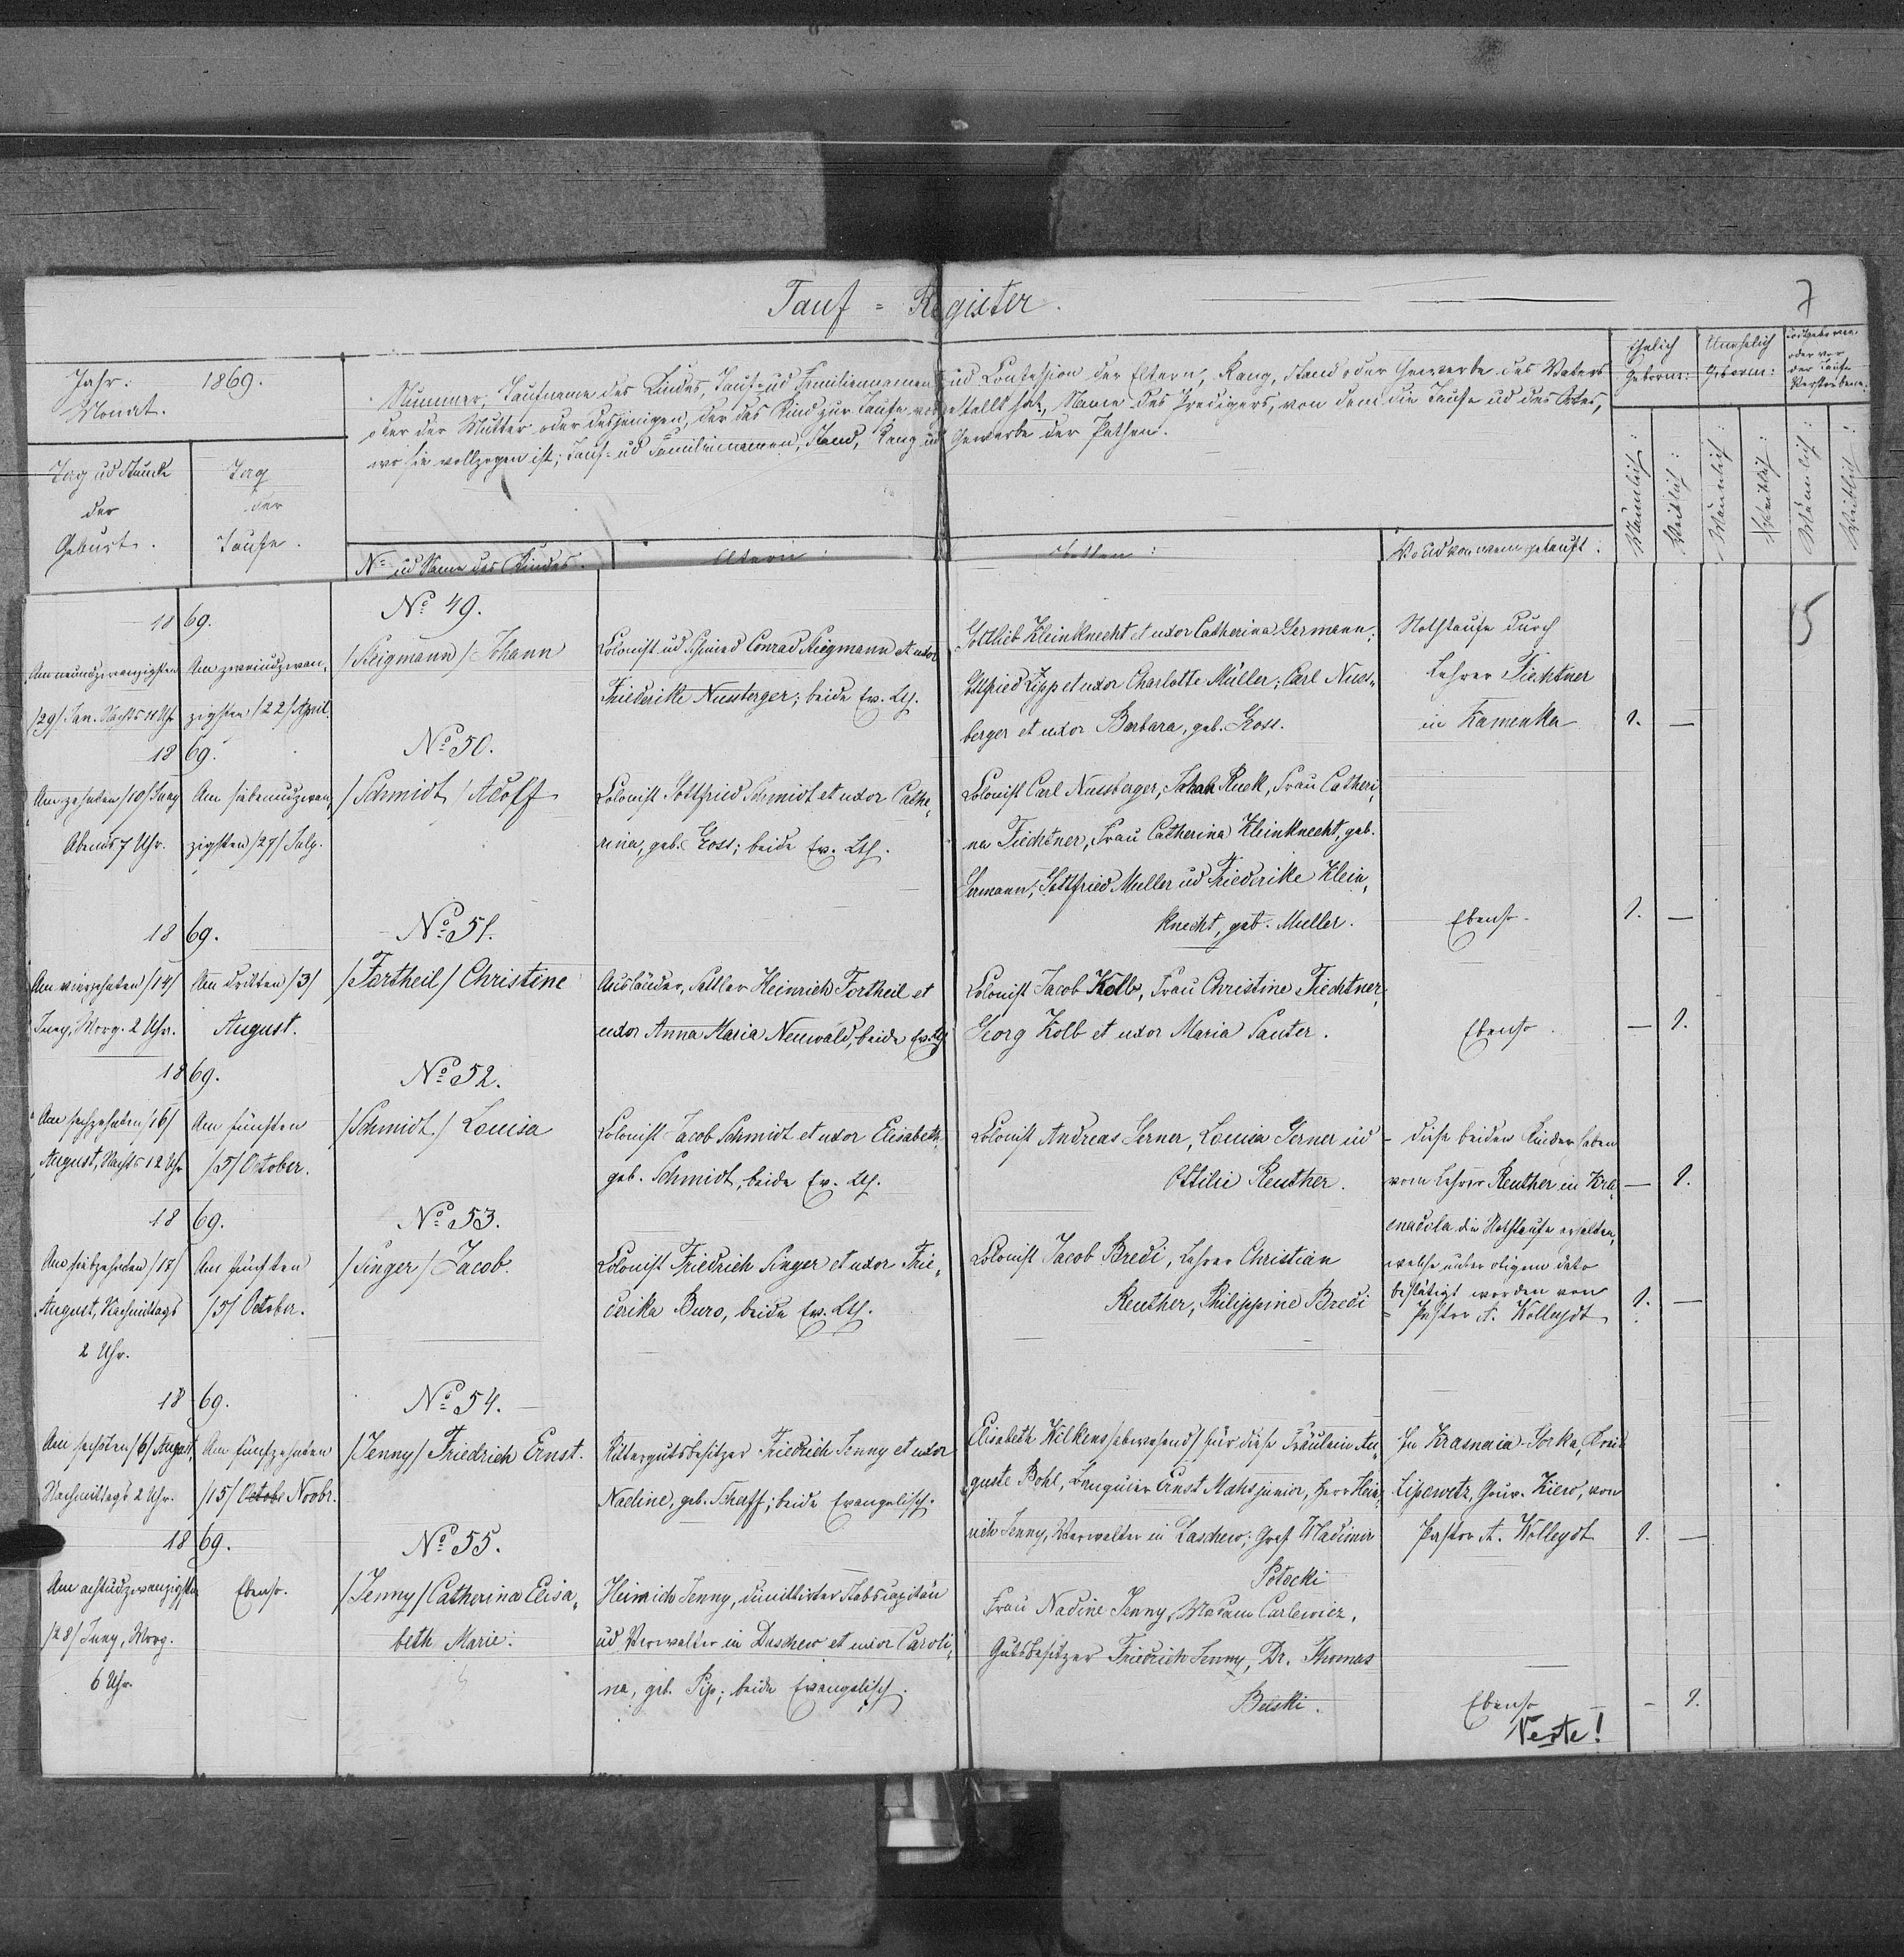 Tauf = Register.
7
Jahr: 1869.
Monat.
Nummer, Taufname des Kindes, Tauf- ud Familiennamen ud Confession der Eltern, Rang, Stand oder Gewerbe des Vaters
oder der Mutter oder desjenigen, der das Kind zur Taufe vorgestellt hat, Name des Predigers, von dem die Taufe ud des Ortes,
wo sie vollzogen ist; Tauf- ud Familiennamen, Stand, Rang ud Gewerbe der Pathen.
Ehelich
Geborne:
Unehelich
Geborne:
Todtgeborne
oder vor
der Taufe
Verstorbene:
Tag ud Stunde
der
Geburt.
Tag
der
Taufe.
No ud Name des Kindes.
Eltern:
Wo ud von wem getauft.
Männlich:
Weiblich:
Männlich:
Weiblich:
Männlich:
Weiblich:
1869.
No 49.
Am neunudzwanzigsten
/29/ Jan. Nachts 11 Uhr
Am zweiudzwan-
zigsten /22/ April.
/Steigmann/ Johann
Colonist ud Schmied Conrad Steigmann et uxor
Friederike Nussberger; beide Ev. Lth.
Gottlieb Kleinknecht et uxor Catherina Germann,
Gottfried Zipp et uxor Charlotte Müller; Carl Nuss-
berger et uxor Barbara, geb. Gross.
Nothtaufe durch
Lehrer Fiechtner
in Kamenka
1. —
5
1869.
No 50.
Am zehnten /10/ Juny
Abends 7 Uhr.
Am siebenudzwan-
zigsten /27/ July.
/Schmidt/ Adolf
Colonist Gottfried Schmidt et uxor Cathe-
rina, geb. Gross; beide Ev. Lth.
Colonist Carl Nussberger, Jakob Ruck, Frau Catheri-
na Fiechtner, Frau Catherina Kleinknecht, geb.
Germann; Gottfried Muller ud Friederike Klein-
knecht, geb. Muller.
Ebenso.
1. —
1869.
No 51.
Am vierzehnten /14/
Juny, Morg. 2 Uhr.
Am dritten /3/
August.
/Fortheil/ Christine
Ausländer, Sattler Heinrich Fortheil et
uxor Anna Maria Neuwald, beide Ev. Lth
Colonist Jacob Kolb, Frau Christine Fiechtner,
Georg Kolb et uxor Maria Sauter.
Ebenso.
— 1.
1869.
No 52.
Am sechzehnten /16/
August, Nachts 12 Uhr
Am fünften
/5/ October.
/Schmidt/ Louisa
Colonist Jacob Schmidt et uxor Elisabeth
geb. Schmidt, beide Ev. Lth.
Colonist Andreas Gerner, Louisa Gerner ud
Ottilie Reuther.
Diese beiden Kinder haben
vom Lehrer Reuther in
die Nothtaufe erhalten,
welche unter obigem dato
bestätigt worden von
Pastor A. Wolleydt
— 1.
1869.
No 53.
Am siebzehnten
August, Nachmittags
2 Uhr.
Am fünften
/5/ October.
/Singer/ Jacob.
Colonist Friedrich Singer et uxor Frie-
derika Buro, beide Ev. Lth.
Colonist Jacob Bredi, Lehrer Christian
Reuther, Philippine Bredi
1. —
1869.
No 54.
Am sechsten /6/ August,
Nachmittags 2 Uhr.
Am fünfzehnten
/15/ Octob. Novbr.
/Jenny/ Friedrich Ernst.
Rittergutsbesitzer Friedrich Jenny et uxor
Nadine, geb. Scheff; beide Evangelisch.
Elisabeth Wilkens /abwesend/ für diese Fräulein Au-
guste Bohl, Banquier Ernst Mahs junior, Herr Hein-
rich Jenny, Verwalter in Daschew; Graf Wladimir
Potocki
In Krasnaia-Gorka, Kreis
Lipowetz, Gouv. Kiew, von
Pastor A. Wolleydt
1. —
1869.
No 55.
Am achtudzwanzigsten
/28/ Juny, Morg.
6 Uhr.
Ebenso.
/Jenny/ Catherina Elisa-
beth Marie.
Heinrich Jenny, dimittirter Stabscapitän
ud Verwalter in Daschew et uxor Caroli-
na, geb. Pip; beide Evangelisch.
Frau Nadine Jenny, Madam Carlewicz,
Gutsbesitzer Friedrich Jenny, Dr. Thomas
Belski.
Ebenso
- 1.
Verte!